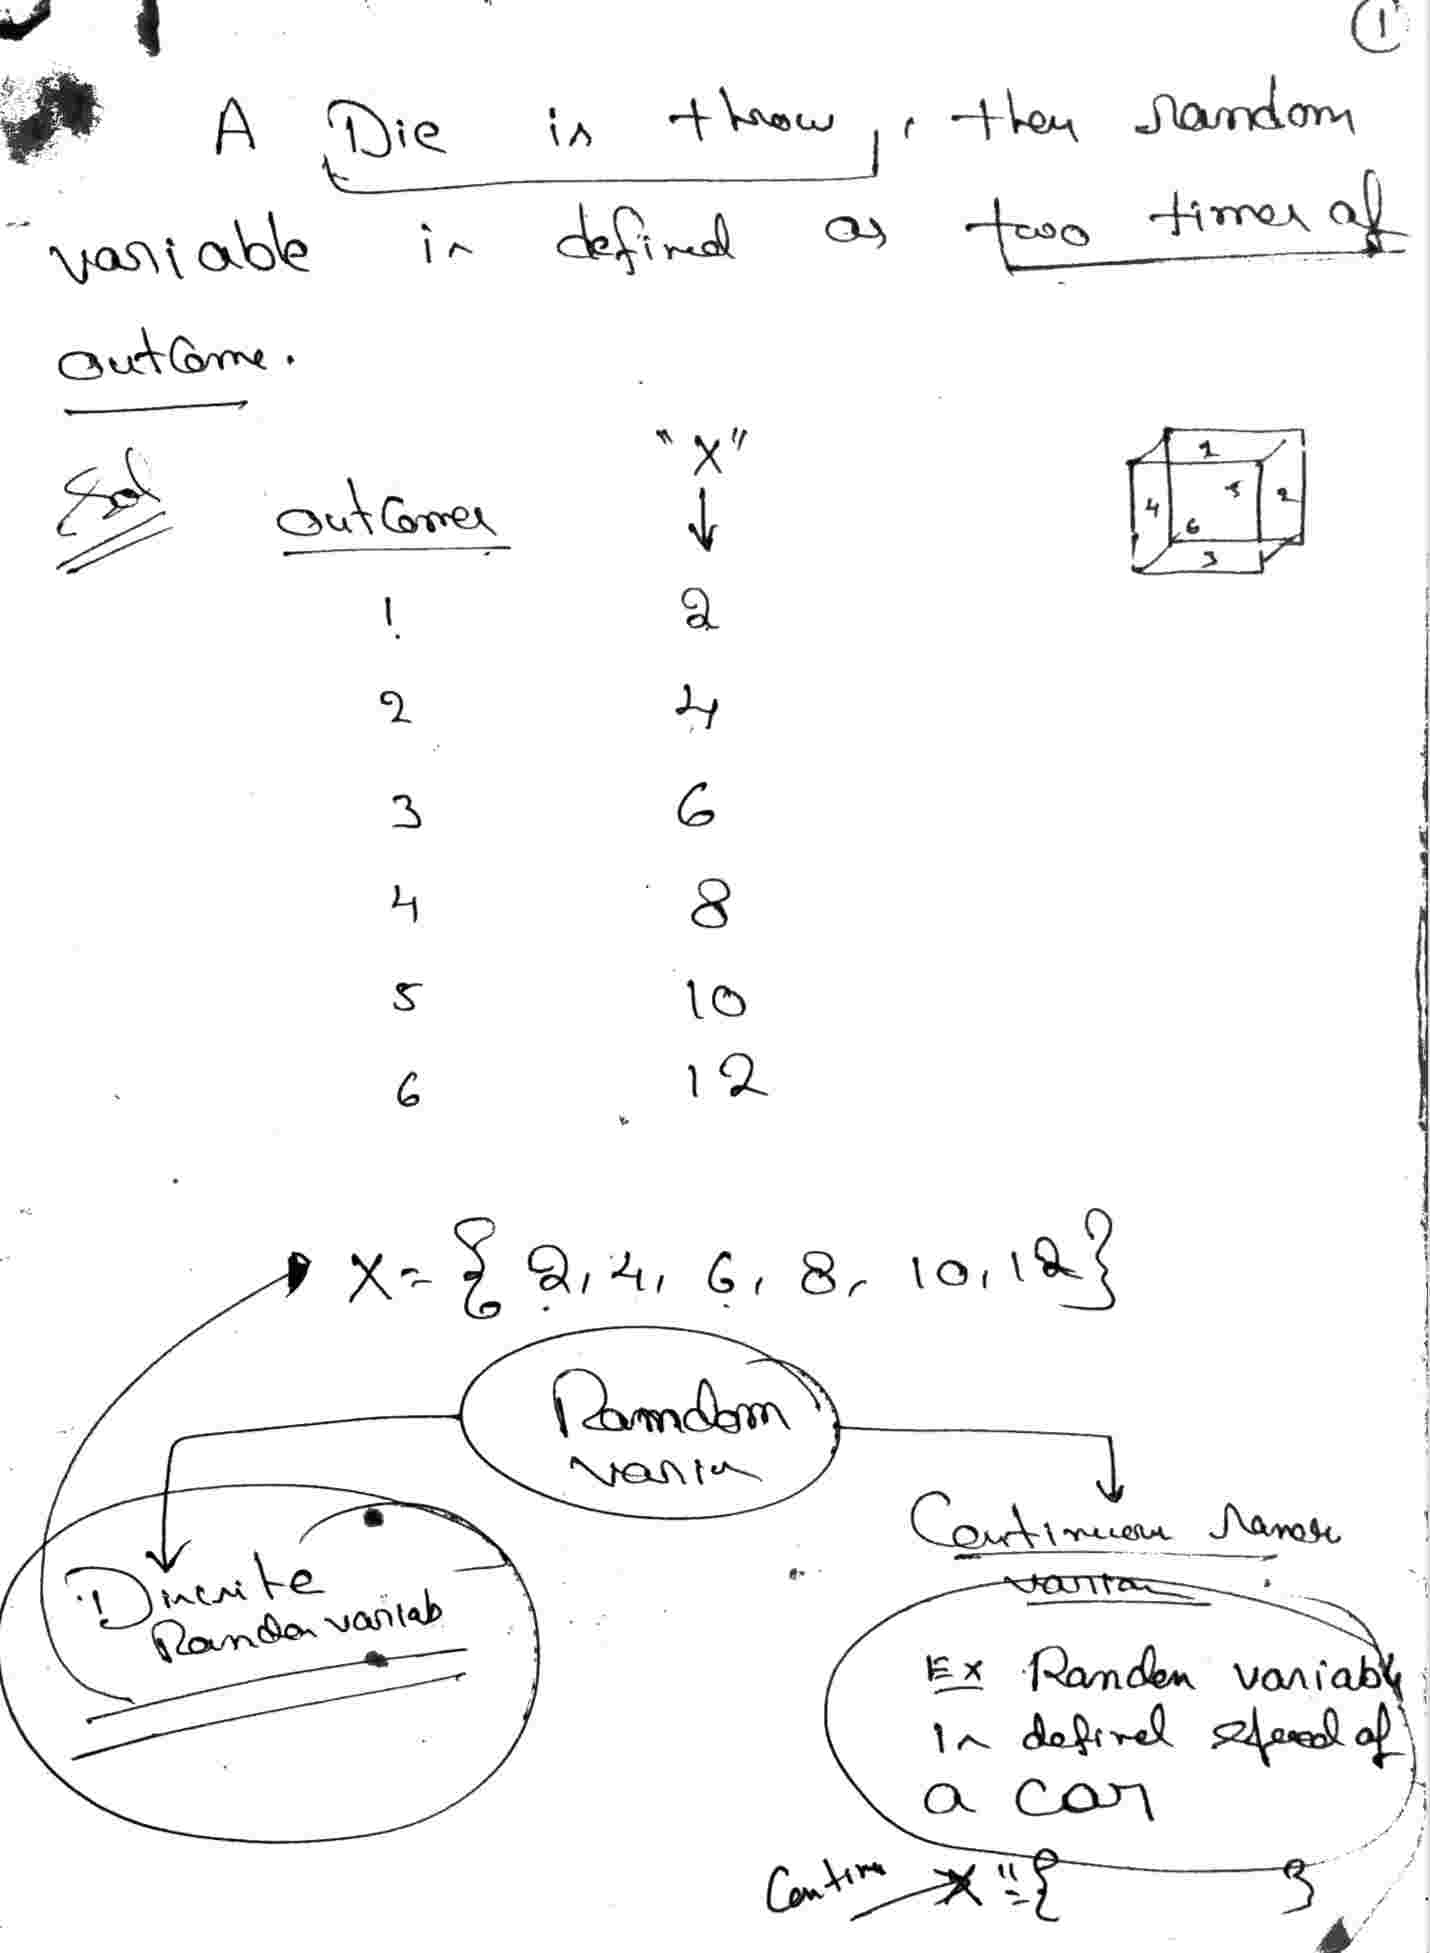 1
A Die is throw, then random
variable is defined as two times of
outcome.
Sol
outcomes
"X"
1 2
2 4
3 6
4 8
5 10
6 12
1
4 5 2
6
3
X = { 2, 4, 6, 8, 10, 12 }
Random
Discrite
Random variab
Continuous
Ex Random variable
is defined speed of
a car
X = { }